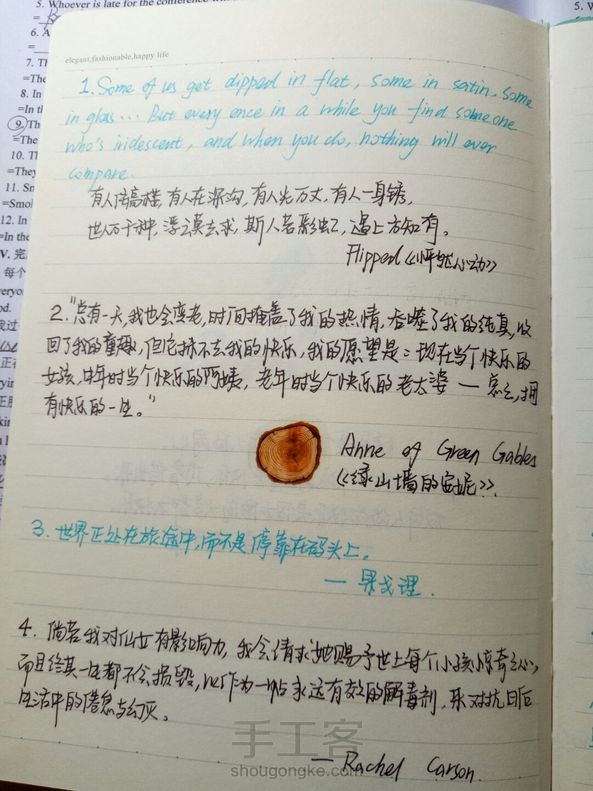 5. Whoever is late for the conference
6. A
7. Th
=The
8. In
=In th
9. Th
=The
10. T
=They
11. Sm
=Smol
12. In
=In the
V. 完
每个
elegant,fashionable,happy life
1. Some of us get dipped in flat, some in satin, some
in gloss... But every once in a while you find someone
who's iridescent, and when you do, nothing will ever
compare.
有人住高楼,有人在深沟,有人光万丈,有人一身锈,
世人万千种,浮云莫去求,斯人若彩虹,遇上方知有。
Flipped《怦然心动》
2."总有一天,我也会变老,时间掩盖了我的热情,吞噬了我的纯真,收
回了我的童趣,但它抹不去我的快乐,我的愿望是:现在当个快乐的
女孩,中年时当个快乐的阿姨,老年时当个快乐的老太婆 — 总之,拥
有快乐的一生。"
Anne of Green Gables
《绿山墙的安妮》
3. 世界正处在旅途中,而不是停靠在码头上。
— 果戈理.
4. 倘若我对仙女有影响力,我会请求她赐予世上每个小孩惊奇之心,
而且终其一生都不会损毁,以作为一帖永远有效的解毒剂,来对抗日后
生活中的倦怠与幻灭。
— Rachel Carson.
手工客
shougongke.com
5. W